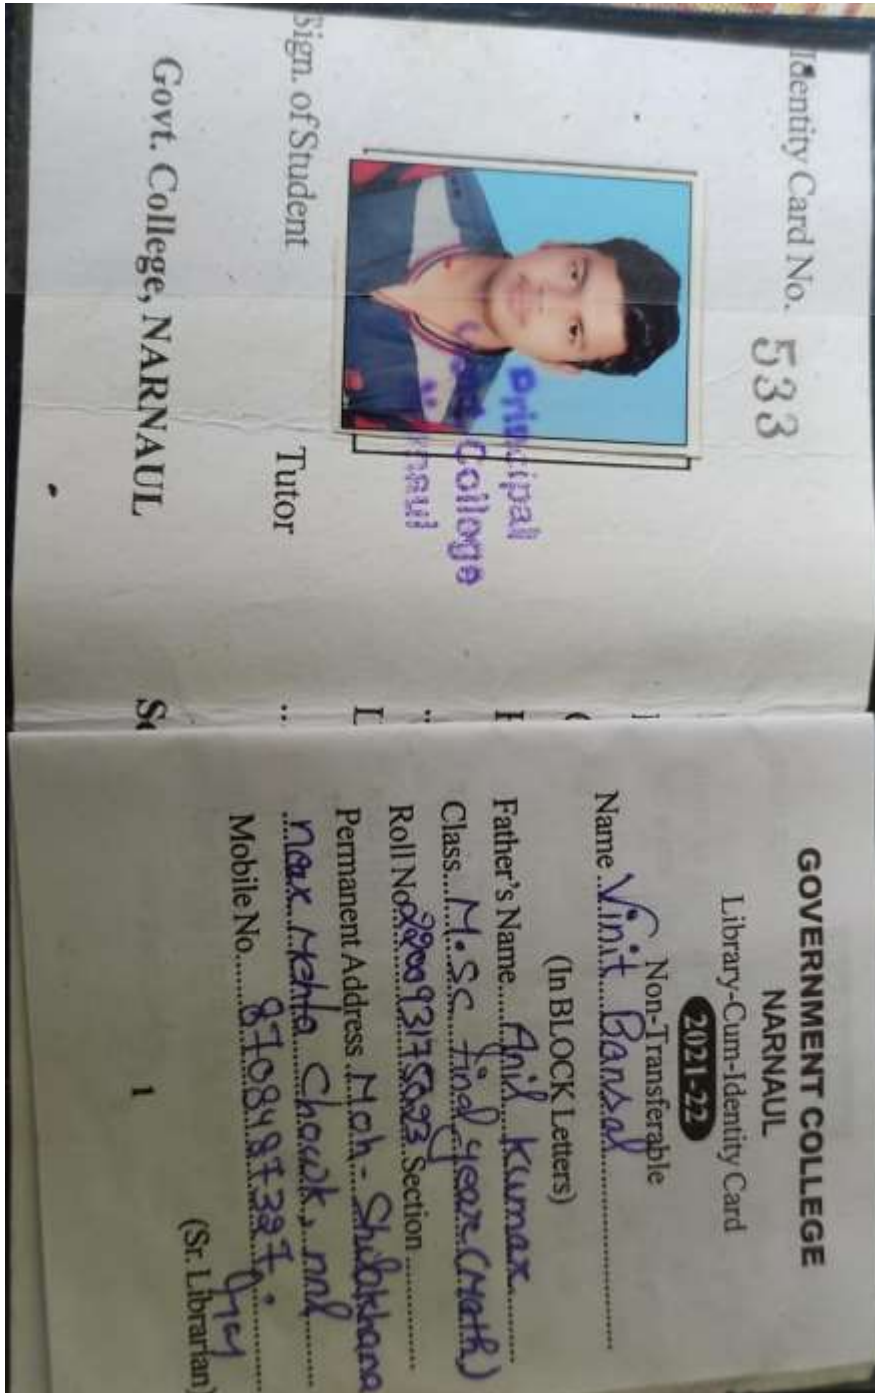 Identity Card No. 533
Principal
Govt. College
Sign. of Student Tutor
Govt. College, NARNAUL
GOVERNMENT COLLEGE
NARNAUL
Library-Cum-Identity Card
2021-22
Non-Transferable
Name Vinit Bansal
(In BLOCK Letters)
Father's Name Anil Kumar
Class M.Sc final year (Math)
Roll No 220093175023 Section
Permanent Address Moh-
Chowk, nnl
Mobile No. 8708487327.
(Sr. Librarian)
1